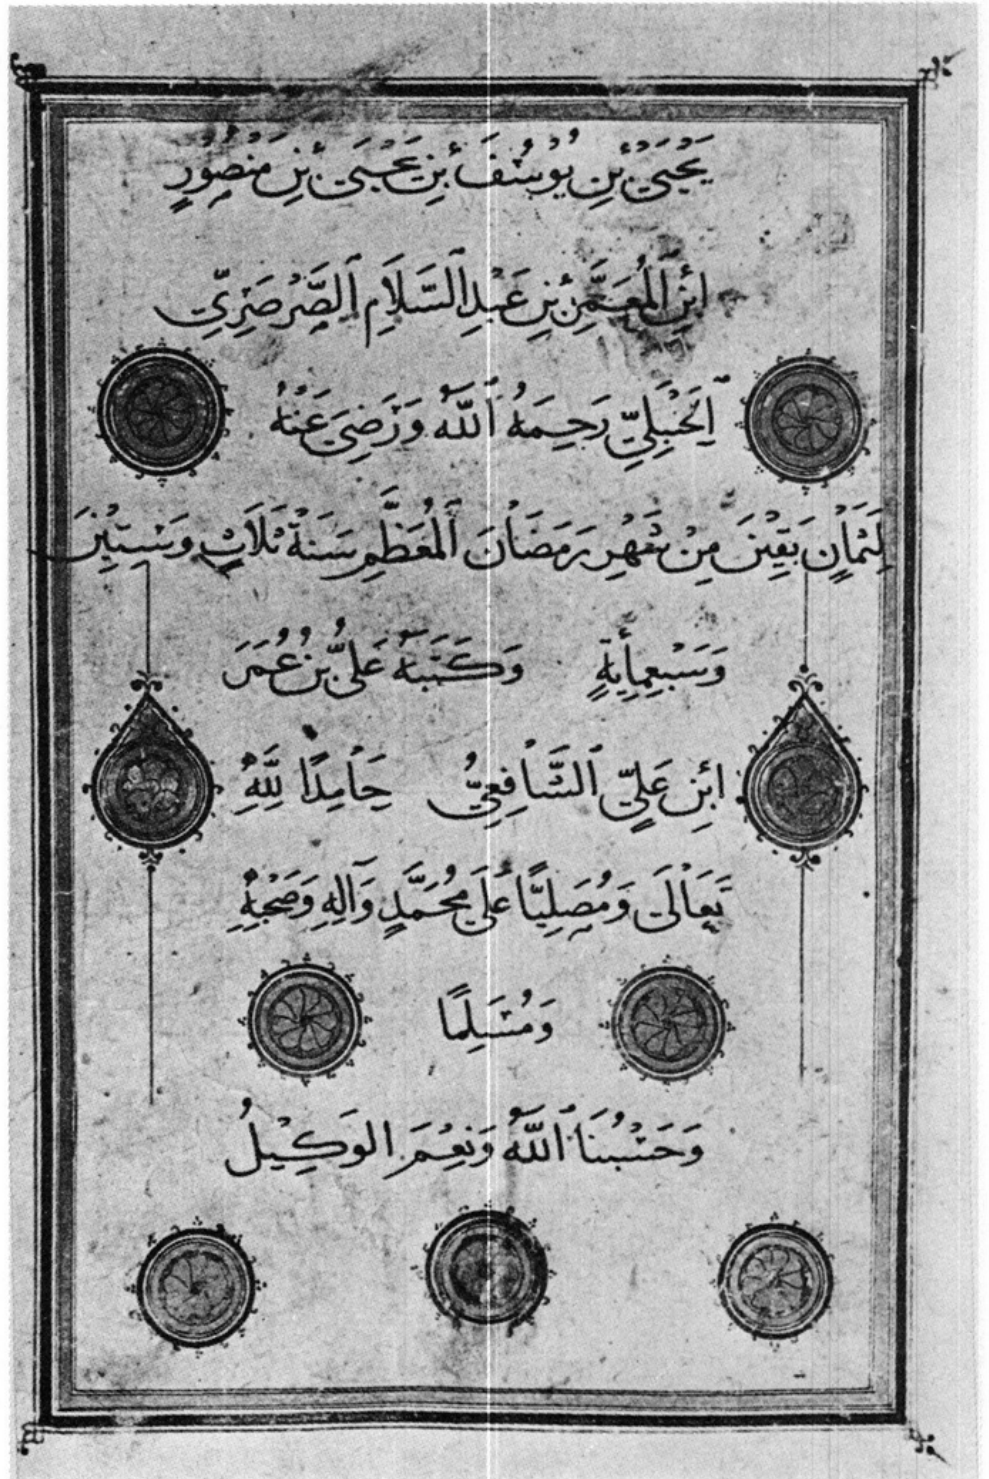 يَحْيَى بْنِ يُوسُفَ بْنِ يَحْيَى بْنِ مَنْصُورٍ
ابْنِ الْمُعَمَّرِ بْنِ عَبْدِ السَّلَامِ الصَّرْصَرِيِّ
الْحَنْبَلِيِّ رَحِمَهُ اللَّهُ وَرَضِيَ عَنْهُ
لِثَمَانٍ بَقِينَ مِنْ شَهْرِ رَمَضَانَ الْمُعَظَّمِ سَنَةَ ثَلَاثٍ وَسِتِّينَ
وَسَبْعِمِأَيةٍ وَكَتَبَهُ عَلِيُّ بْنُ عُمَرَ
ابْنِ عَلِيٍّ الشَّافِعِيُّ حَامِدًا لِلَّهِ
تَعَالَى وَمُصَلِّيًا عَلَى مُحَمَّدٍ وَآلِهِ وَصَحْبِهِ
وَمُسَلِّمًا
وَحَسْبُنَا اللَّهُ وَنِعْمَ الْوَكِيلُ